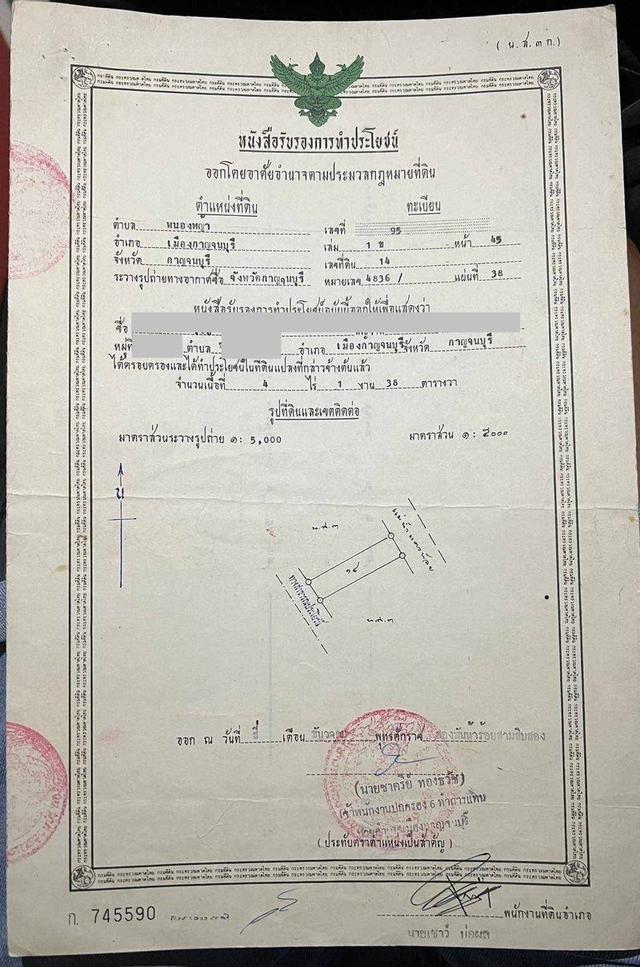 ( น.ส.๓ ก.)
หนังสือรับรองการทำประโยชน์
ออกโดยอาศัยอำนาจตามประมวลกฎหมายที่ดิน
ตำแหน่งที่ดิน
ทะเบียน
ตำบล หนองหญ้า เลขที่ 95
อำเภอ เมืองกาญจนบุรี เล่ม 1 ข หน้า 45
จังหวัด กาญจนบุรี เลขที่ดิน 14
ระวางรูปถ่ายทางอากาศชื่อ จังหวัดกาญจนบุรี หมายเลข 4836 / แผ่นที่ 38
หนังสือรับรองการทำประโยชน์ฉบับนี้ออกให้เพื่อแสดงว่า
ชื่อ
หมู่ที่ ตำบล อำเภอ เมืองกาญจนบุรี จังหวัด กาญจนบุรี
ได้ครอบครองและได้ทำประโยชน์ในที่ดินแปลงที่กล่าวข้างต้นแล้ว
จำนวนเนื้อที่ 4 ไร่ 1 งาน 38 ตารางวา
รูปที่ดินและเขตติดต่อ
มาตราส่วนระวางรูปถ่าย ๑: 5,000 มาตราส่วน ๑ : ๕๐๐๐
น
น.ส.๓
๑๔
ทางสาธารณประโยชน์
น.ส.๓
ออก ณ วันที่ สี่ เดือน ธันวาคม พุทธศักราช สองพันห้าร้อยสามสิบสอง
(นายชาตรีย์ ทองธวัช)
เจ้าพนักงานปกครอง 6 ทำการแทน
(ประทับตราตำแหน่งเป็นสำคัญ)
ก. 745590
พนักงานที่ดินอำเภอ
นายเชาว์ บ่อผล